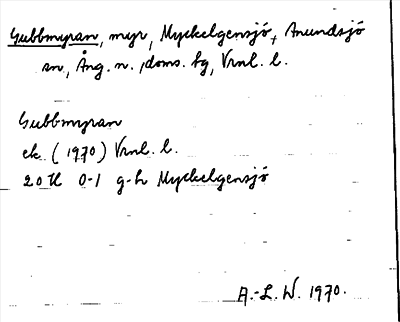 Gubbmyran, myr, Myckelgensjö, Anundsjö
sn, Ång. n., doms. bg, Vrnl. l.
Gubbmyran
ek. (1970) Vrnl. l.
20H 0-1 g-h Myckelgensjö
A.-L. W. 1970.